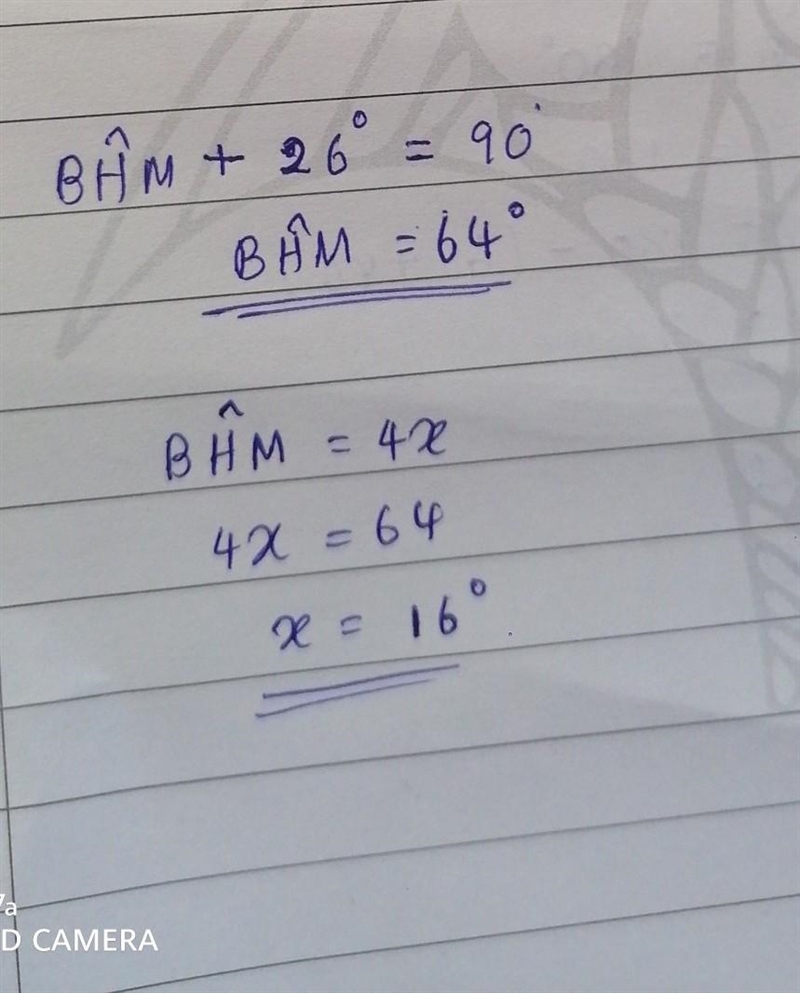 BĤM + 26° = 90°
BĤM = 64°
BĤM = 4x
4x = 64
x = 16°
7a
D CAMERA